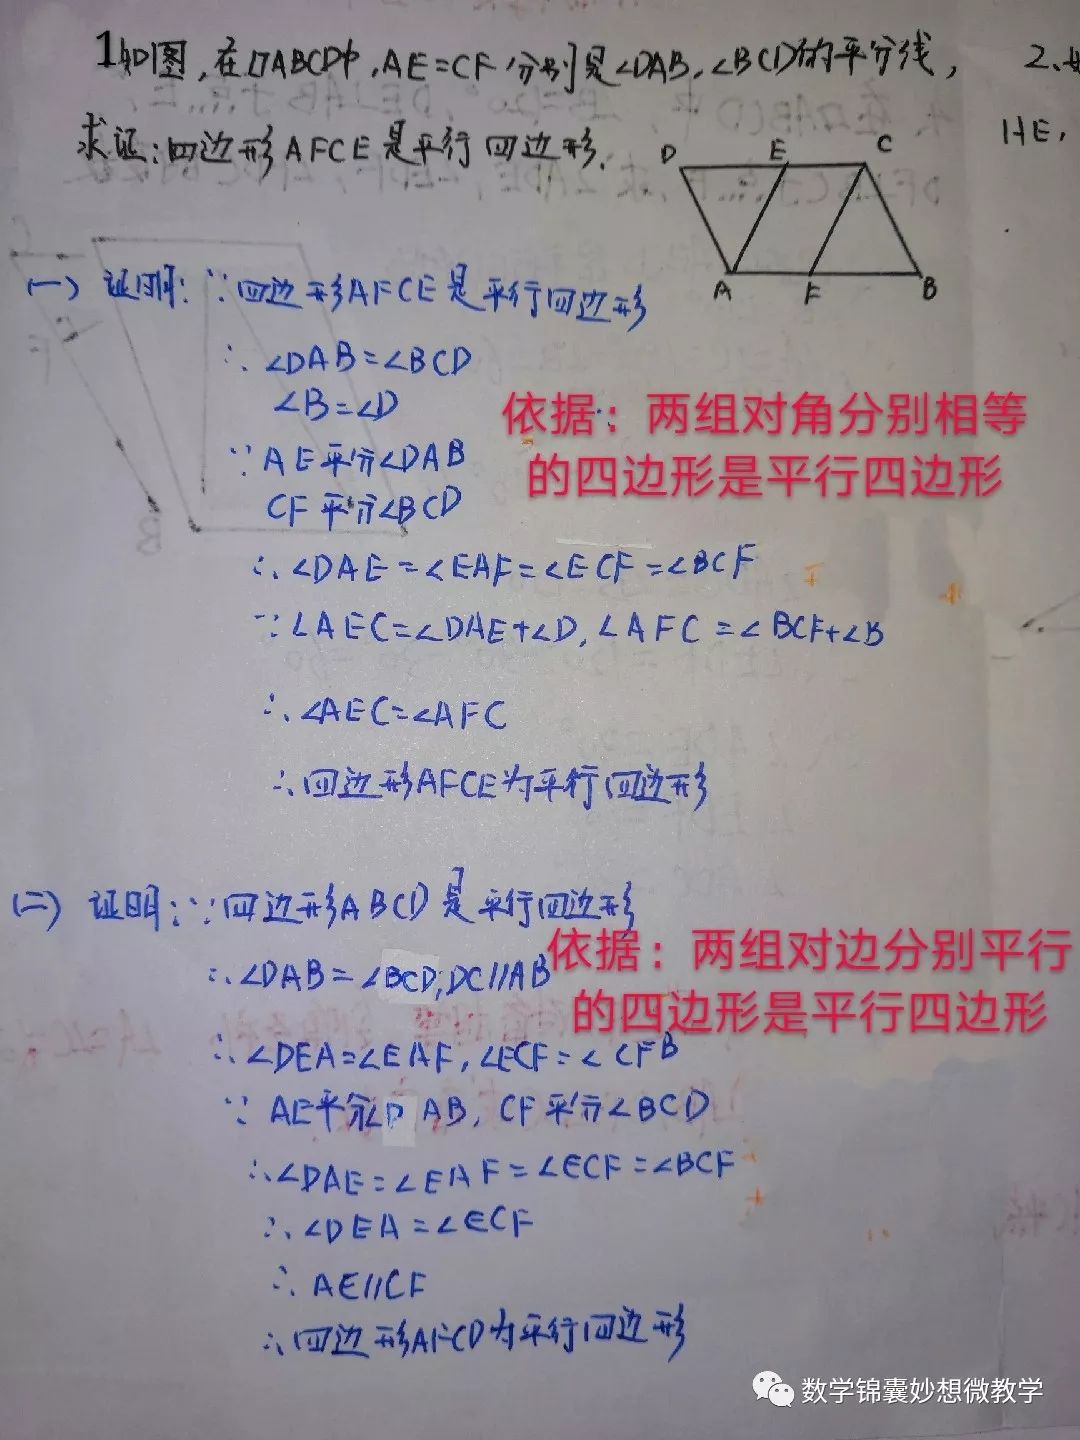 1.如图,在▱ABCD中,AE=CF分别是∠DAB,∠BCD的平分线,
求证:四边形AFCE是平行四边形.
D E C
A F B
2、
HE,
(一) 证明:∵四边形AFCE是平行四边形
∴∠DAB=∠BCD
∠B=∠D
依据:两组对角分别相等
的四边形是平行四边形
∵AE平分∠DAB
CF平分∠BCD
∴∠DAE=∠EAF=∠ECF=∠BCF
∵∠AEC=∠DAE+∠D,∠AFC=∠BCF+∠B
∴∠AEC=∠AFC
∴四边形AFCE为平行四边形
(二) 证明:∵四边形ABCD是平行四边形
依据:两组对边分别平行
的四边形是平行四边形
∴∠DAB=∠BCD;DC//AB
∴∠DEA=∠EAF,∠ECF=∠CFB
∵AE平分∠DAB,CF平分∠BCD
∴∠DAE=∠EAF=∠ECF=∠BCF
∴∠DEA=∠ECF
∴AE//CF
∴四边形AFCD为平行四边形
数学锦囊妙想微教学